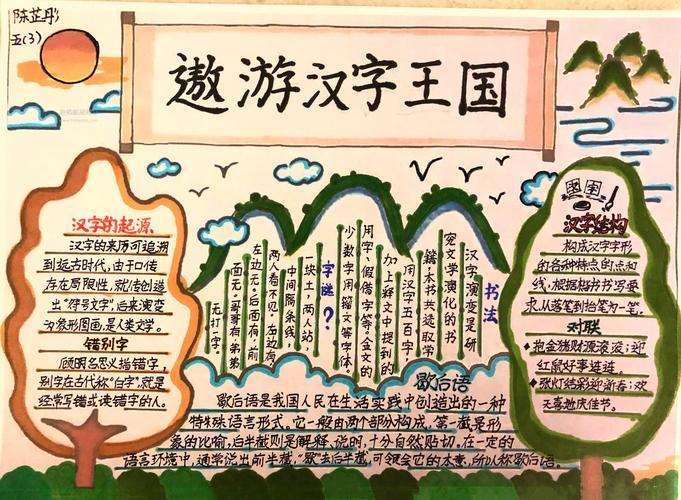 陈芷彤
五(3)
遨游汉字王国
汉字的起源
汉字的来历可追溯
到远古时代,由于口传
存在局限性,就传创造
出"符号文字",后来演变
为象形图画,是人类文学。
错别字
顾名思义指错字,
别字在古代称"白字",就是
经常写错或读错字的人。
书法
汉字演变是研
究文学演化的书
籍,本书共选取常
用汉字五百字
加上释文中提到的
用字、假借字等。金文的
少数字用籀文等字体,
字谜?
块土,两人站
中间隔条线,
两人看不见,左边有
左边无,后面有,前
面无,哥哥有,弟弟
无,打一字。
汉字结构
构成汉字字形
的各种特点的点和
线,根据楷书书写要
求,从落笔到抬笔为一笔。
对联
抱金猪财源滚滚;迎
红鼠好事连连。
张灯结彩迎新春;欢
天喜地庆佳节。
歇后语
歇后语是我国人民在生活实践中创造出的一种
特殊语言形式。它一般由两个部分构成,第一截是形
象的比喻,后半截则是解释、说明,十分自然贴切。在一定的
语言环境中,通常说出前半截,"歇"去后半截,可领会它的本意,所以称歇后语。